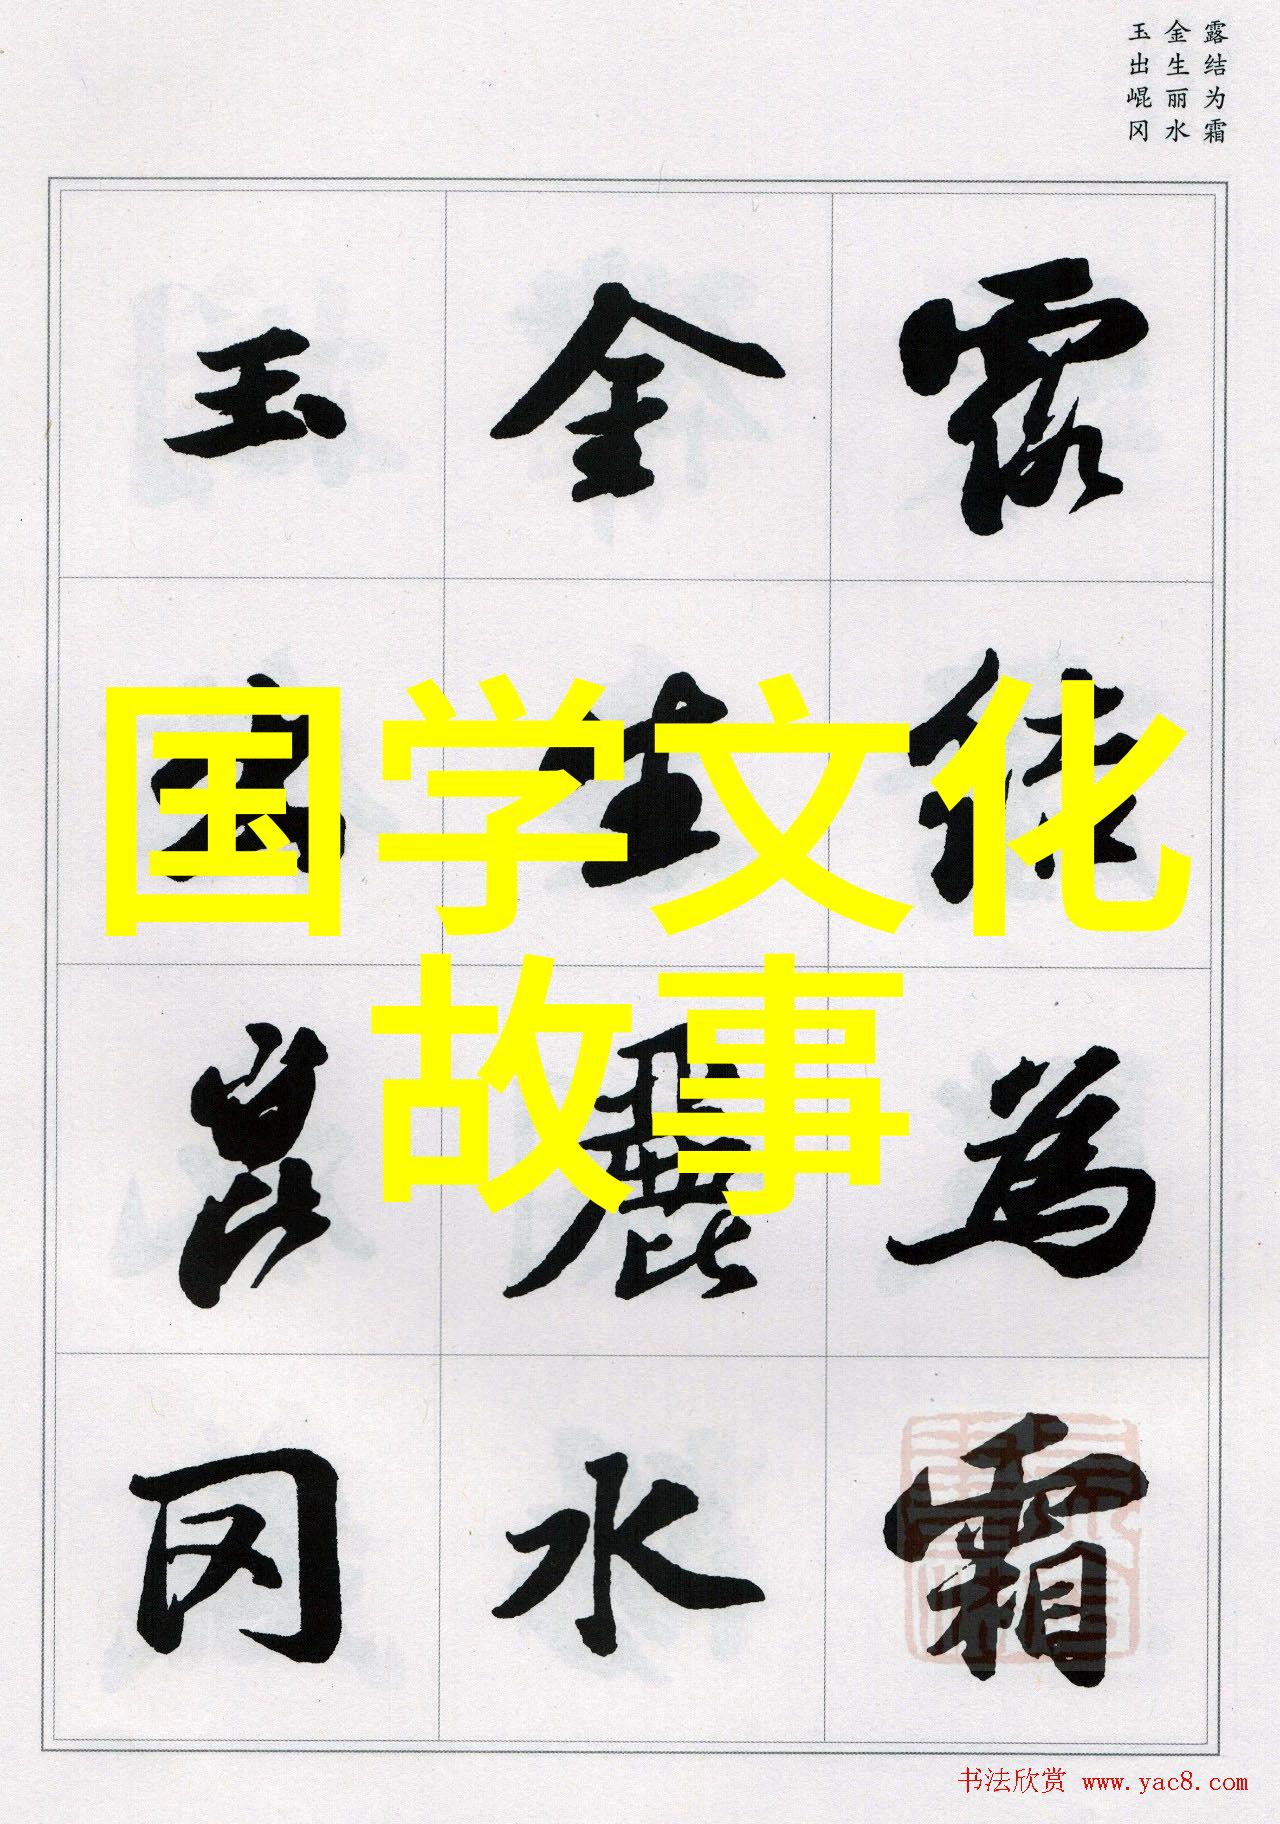 露结为霜
金生丽水
玉出崐冈
露结為霜
金生麗水
玉出崑冈
国学文化
故事
书法欣赏 www.yac8.com